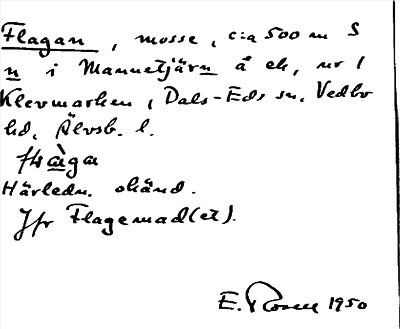 Flagan, mosse, c:a 500 m S
n i Mannetjärn å ek, nr 1
Klevmarken, Dals-Eds sn, Vedbo
hd, Älvsb. l.
flàga
Härledn. okänd.
Jfr Flagemad(et).
E. Rosell 1950